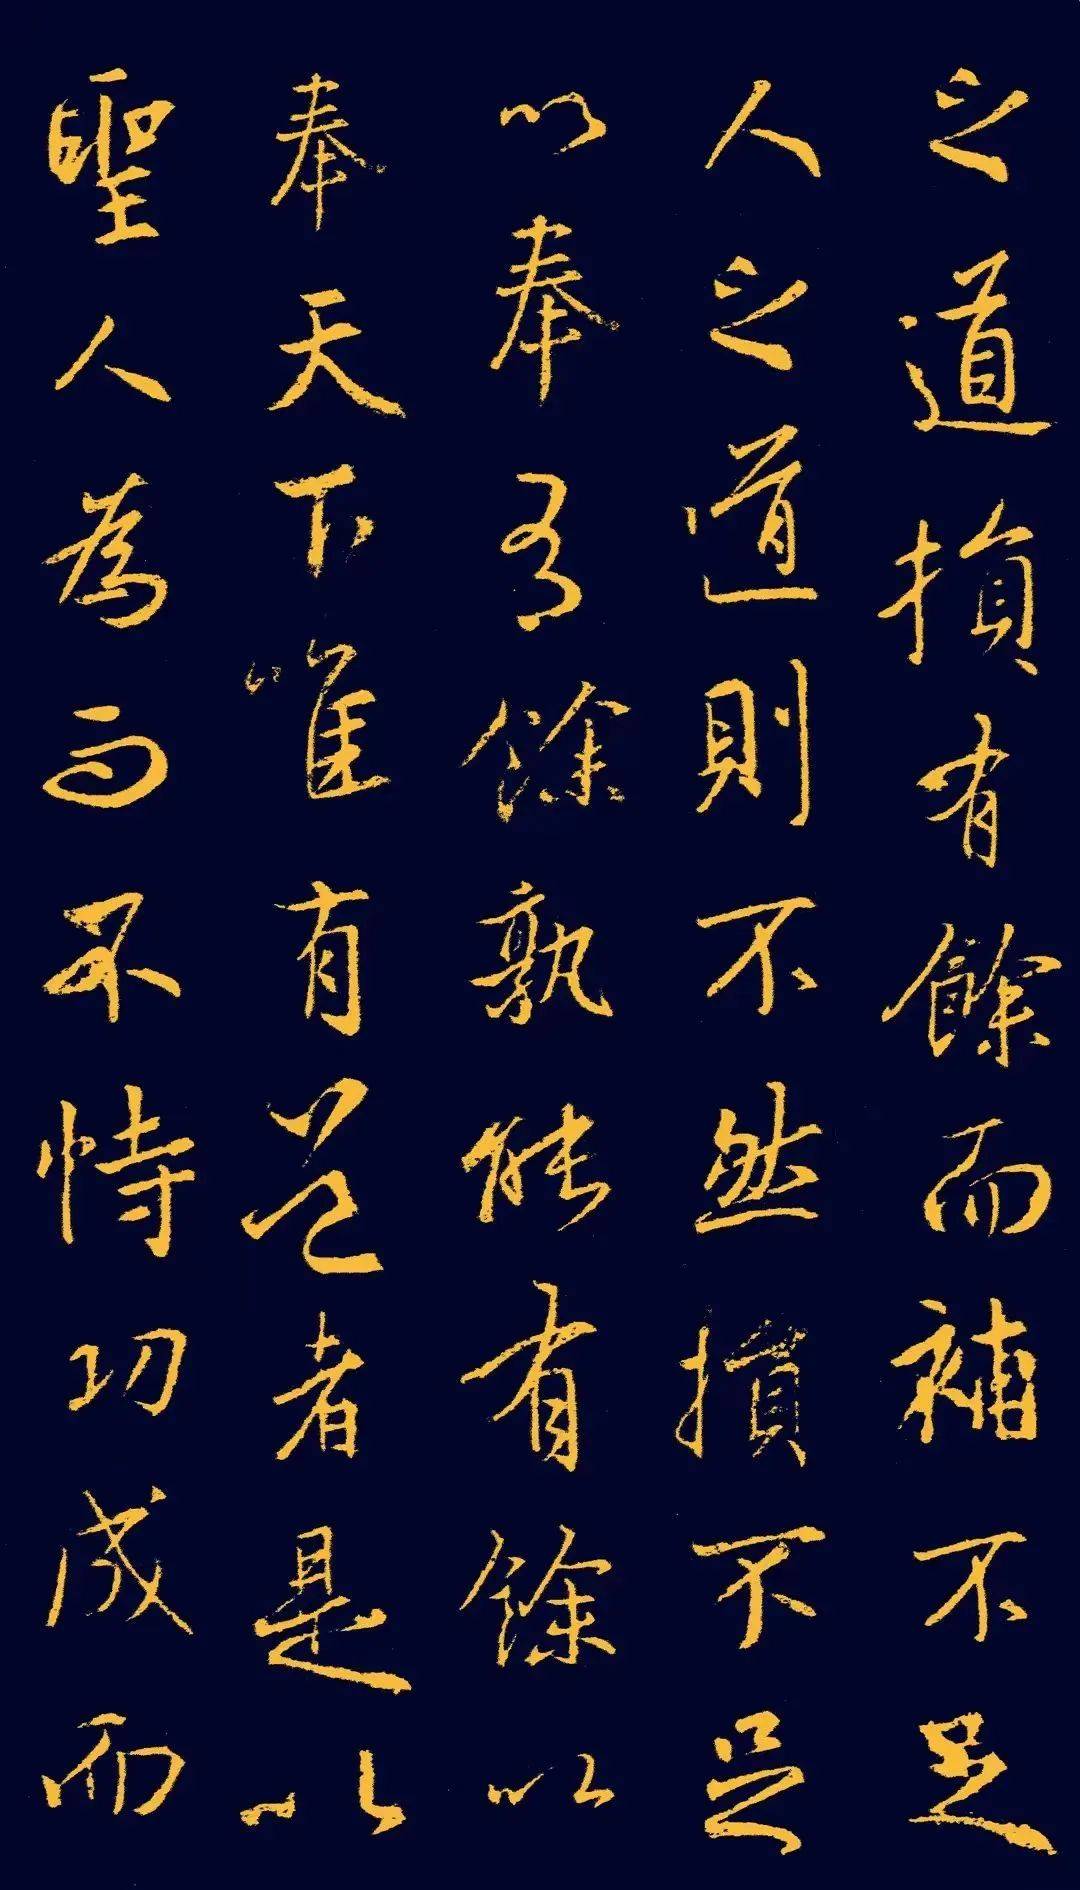 之道損有餘而補不足
人之道則不然損不足
以奉有餘孰能有餘以
奉天下唯有道者是以
聖人為而不恃功成而